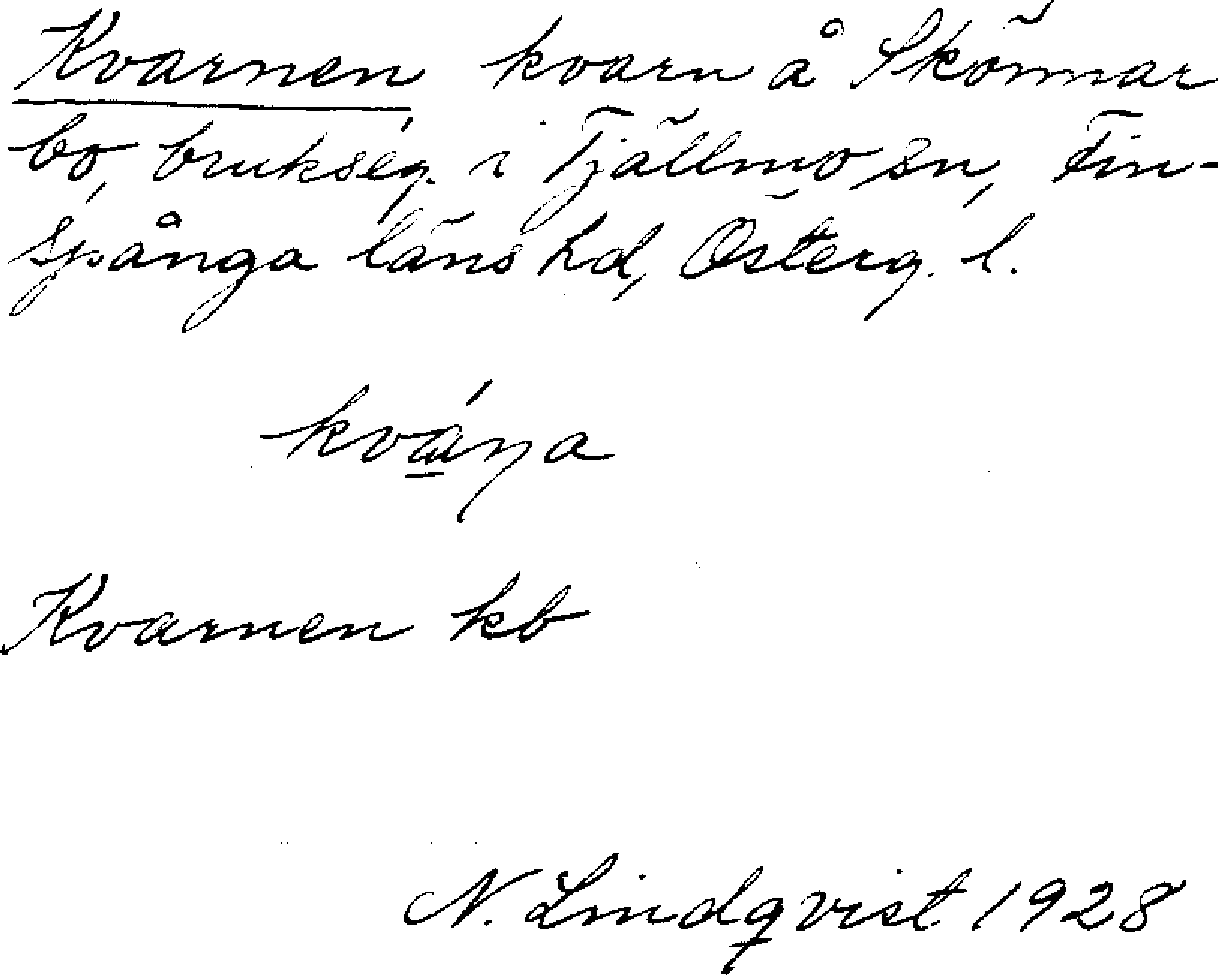 Kvarnen kvarn å Skönnar
bo, brukseg. i Tjällmo sn, Fin-
spånga läns hd, Österg. l.
kvá̱ŋa
Kvarnen kb
N. Lindqvist 1928